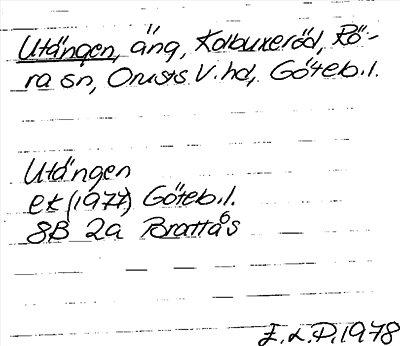 Utängen, äng, Kolbuxeröd, Rö-
ra sn, Orusts V. hd, Göteb. l.
Utängen
ek (1977) Göteb. l.
8B 2a Brattås
E. L. P. 1978